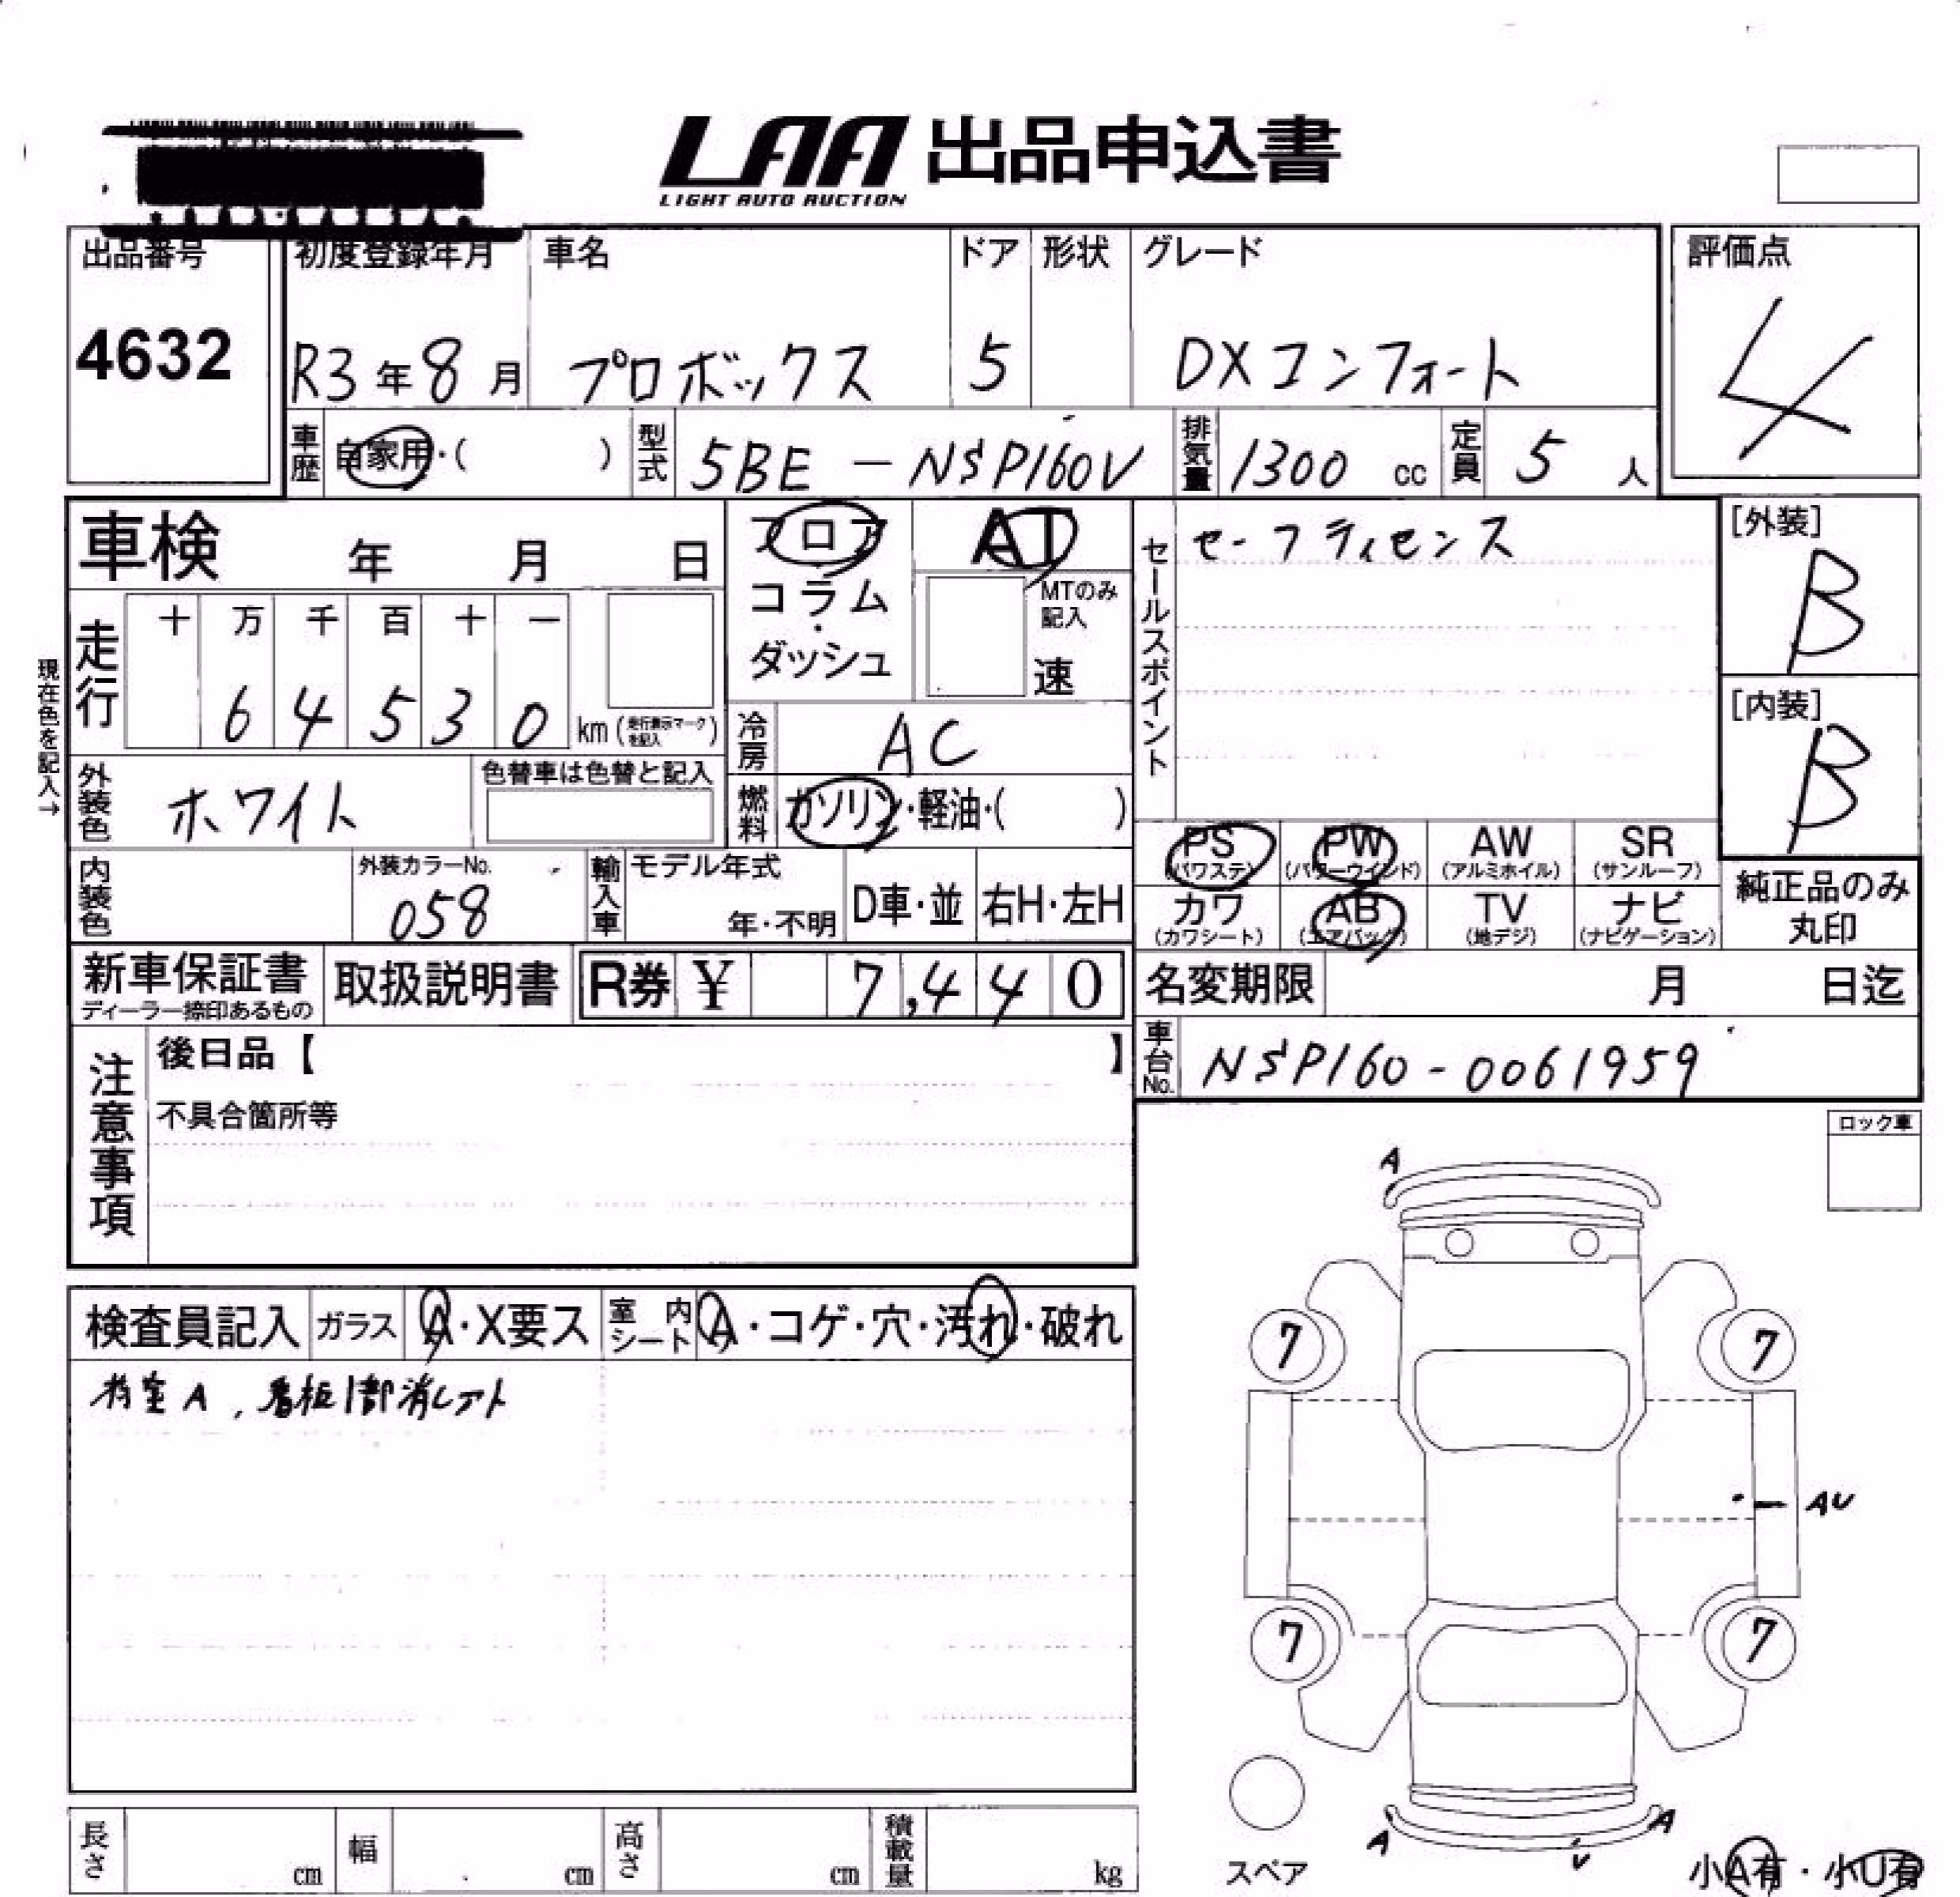 LAA 出品申込書
LIGHT AUTO AUCTION
出品番号 初度登録年月 車名 ドア 形状 グレード 評価点
4632 R3年8月 プロボックス 5 DXコンフォート 4
車歴 自家用・( ) 型式 5BE-NSP160V 排気量 1300 cc 定員 5 人
車検 年 月 日 フロア AT セールスポイント セーフティセンス [外装]
コラム・ MTのみ記入 B
ダッシュ 速
走行 十 万 千 百 十 一
6 4 5 3 0 km (走行表示マークを記入) [内装]
現在色を記入→
冷房 AC B
外装色 ホワイト 色替車は色替と記入 燃料 ガソリン・軽油・( )
PS PW AW SR
(パワステ) (パワーウインド) (アルミホイル) (サンルーフ)
内装色 外装カラーNo. 輸入車 モデル年式 D車・並 右H・左H
058 年・不明
カワ AB TV ナビ 純正品のみ
(カワシート) (エアバッグ) (地デジ) (ナビゲーション) 丸印
新車保証書 取扱説明書 R券 ¥ 7,440 名変期限 月 日迄
ディーラー捺印あるもの
車台No. NSP160-0061959
注意事項 後日品【 】
不具合箇所等
ロック車
A
検査員記入 ガラス A・X要ス 室内シート A・コゲ・穴・汚れ・破れ
7 7
荷室A、看板1部消しアト
AU
7 7
A V A
スペア
小A有・小U有
長さ cm 幅 cm 高さ cm 積載量 kg